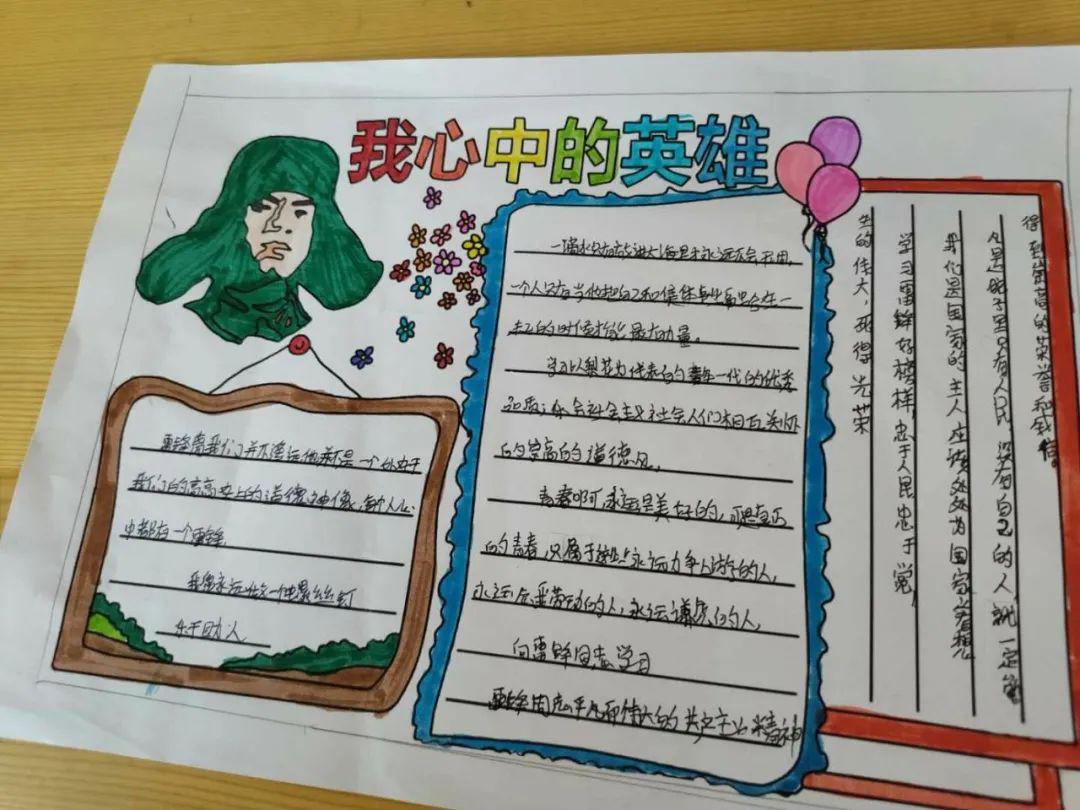 我心中的英雄
雷锋离我们并不遥远他并不是一个
我们的高高在上的道德神像,
中都有一个雷锋
我愿永远做一个螺丝钉
乐于助人
一滴水只有放进大海里才永远不会干
一个人只有当他把自己和集体事业
起的时候才能最有力量。
青年一代的优秀
品质;社会主义社会人们相互关怀
的崇高的道德
青春啊,永远是美好的,可是真正
的青春,只属于永远力争上游的人,
永远劳动的人,永远谦虚的人
向雷锋同志学习
雷锋同志平凡而伟大的共产主义精神
得到崇高的荣誉和
凡是脑子里只有人民,没有自己的人,就一定
我们是国家的主人应该处处为国家着想
学习雷锋好榜样,忠于人民忠于党,
生的伟大,死得光荣